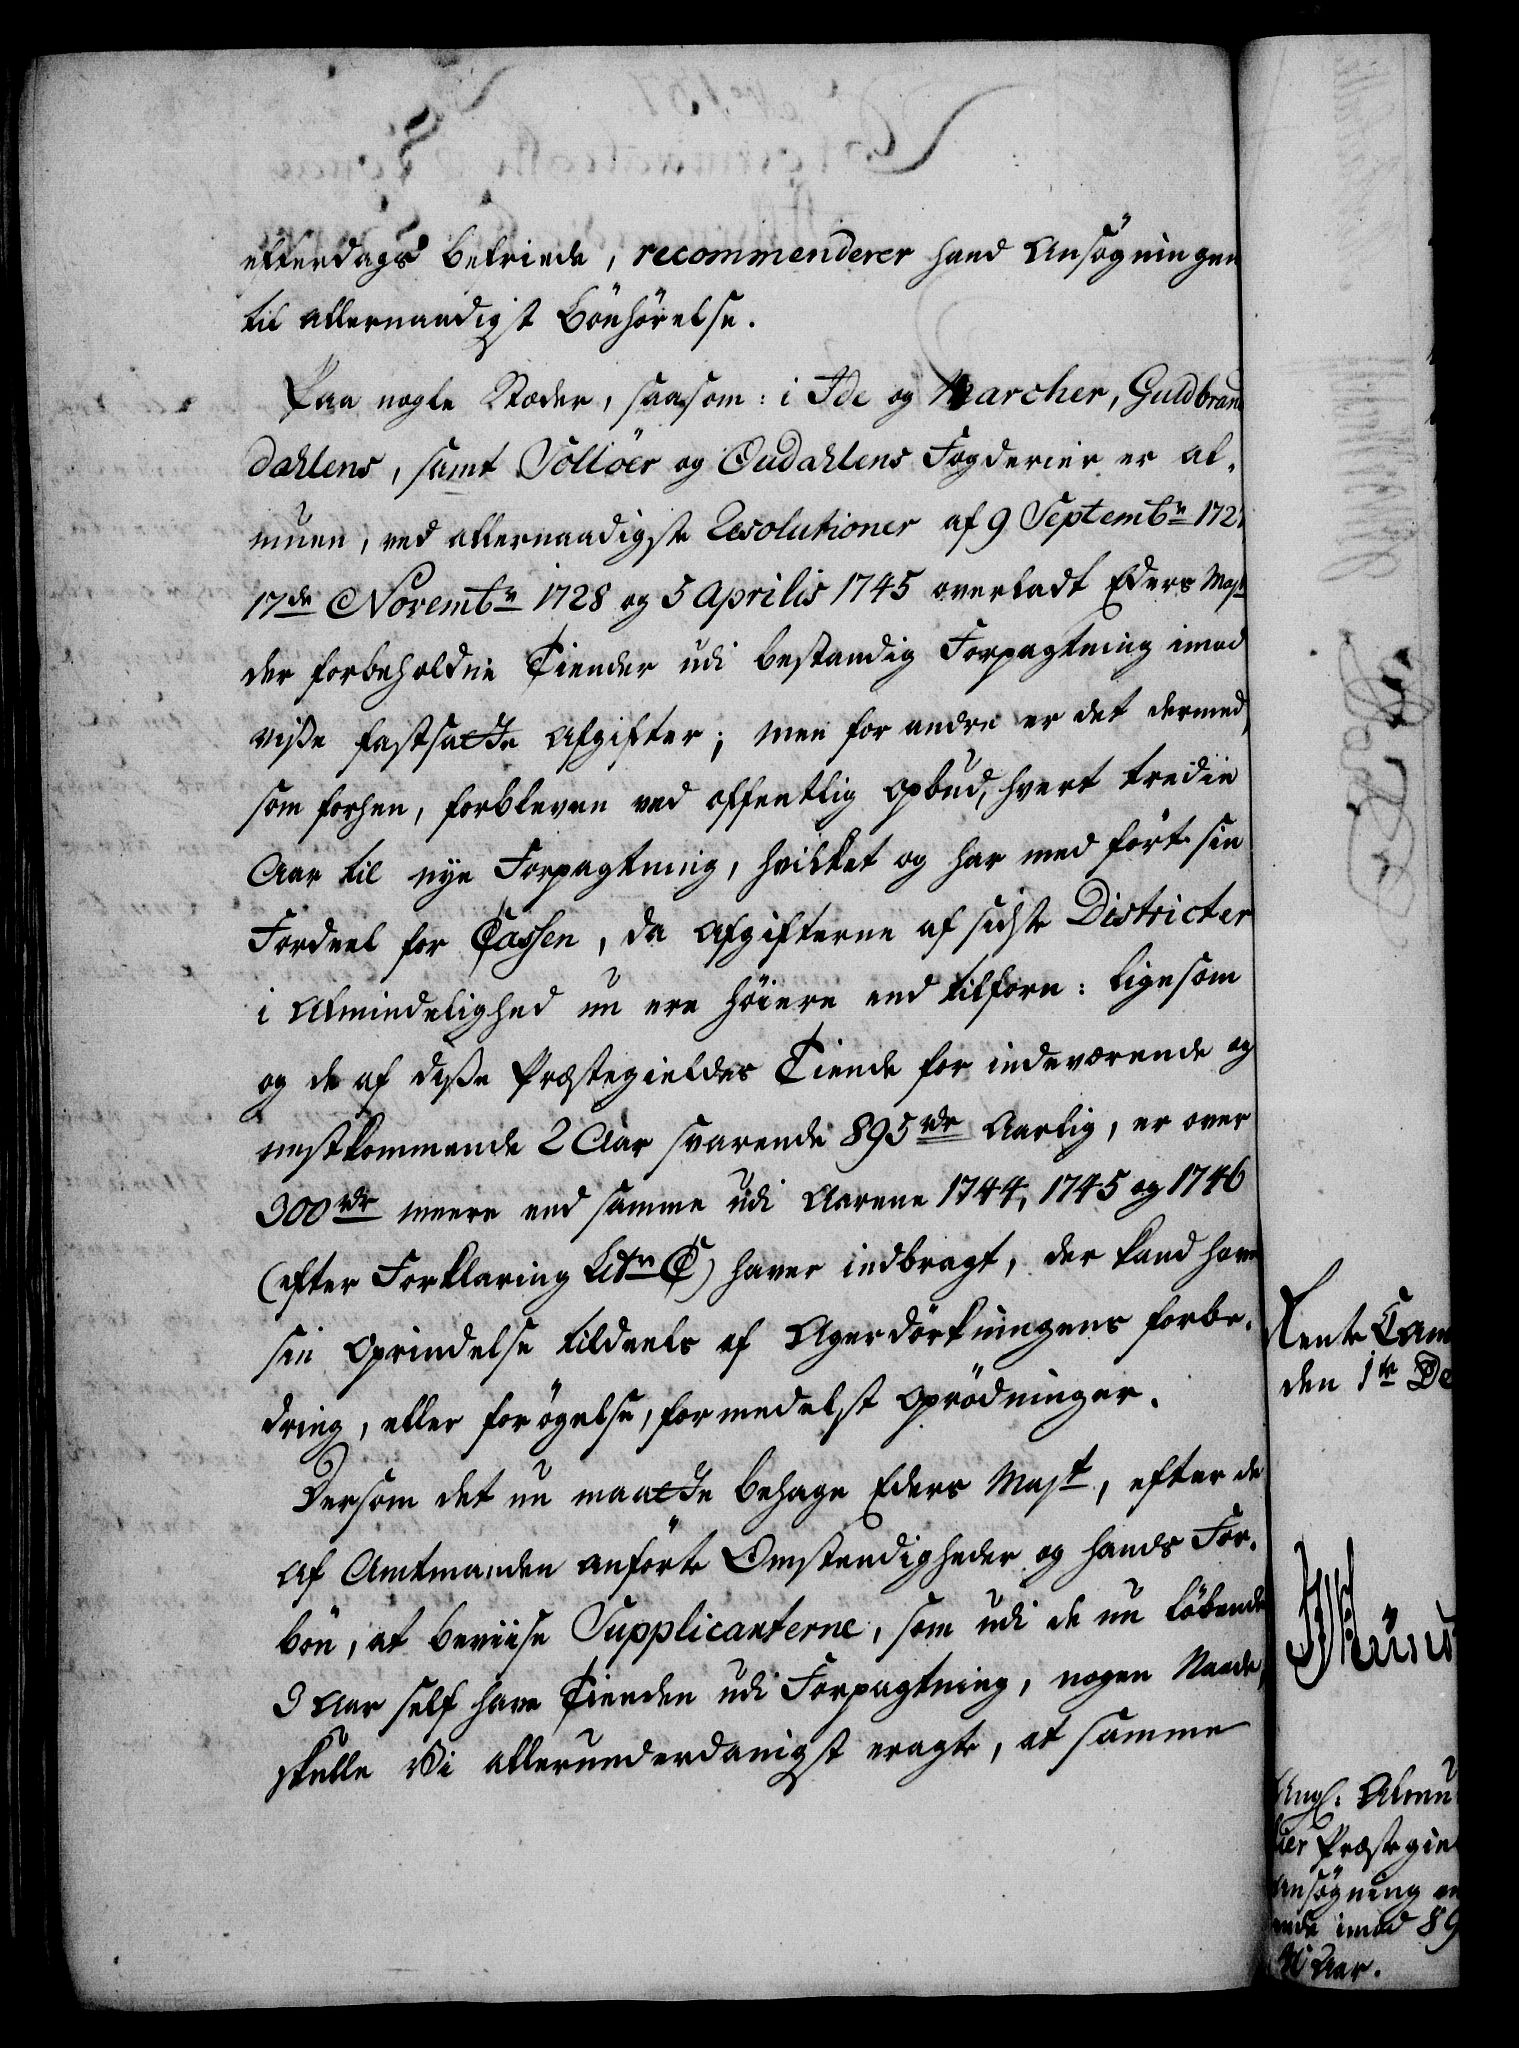 efterdags befriede, recommenderer hand Ansögningen
til allernaadigst Bönhörelse.
Paa nogle Stæder, saasom: i Ide og Marcher, Guldbran
dahlens, samt Sollöer og Oudahlens Fogderier er al-
muen, ved allernaadigste Resolutioner af 9 Septembr 172
17de Novembr 1728 og 5 Aprilis 1745 overladt Eders Mayts
der forbeholdne Tiender udi bestandig Forpagtning imod
visse fastsatte Afgifter; men for andre er det dermed,
som forhen, forbleven ved offentlig Opbud, hvert tredie
Aar til nye Forpagtning, hvilket og har med ført sin
Fordeel for Cassen, da Afgifterne af sidste Districter
i Almindelighed nu ere höiere end tilforn: ligesom
og de af disse Præstegieldes Tiende for indeværende og
nestkommende 2 Aar svarende 895 rdr Aarlig, er over
300 rdr meere end samme udi Aarene 1744, 1745 og 1746
(efter Forklaring Litr C) haver indbragt, der kand have
sin Oprindelse tildeels af Agerdörkningens forbe-
dring, eller forögelse, formedelst Oprödninger.
Dersom det nu maatte behage Eders Mayt, efter de
af Amtmanden anförte Omstendigheder og hands For-
bön, at beviise Supplicanterne, som udi de nu löbende
3 Aar self have Tienden udi Forpagtning, nogen Naade,
skulle Vi allerunderdanigst eragte, at samme
Rente Cam
den 1te De
Angl: Almu
Præstegie
Ansögning
imod 89
Aar.